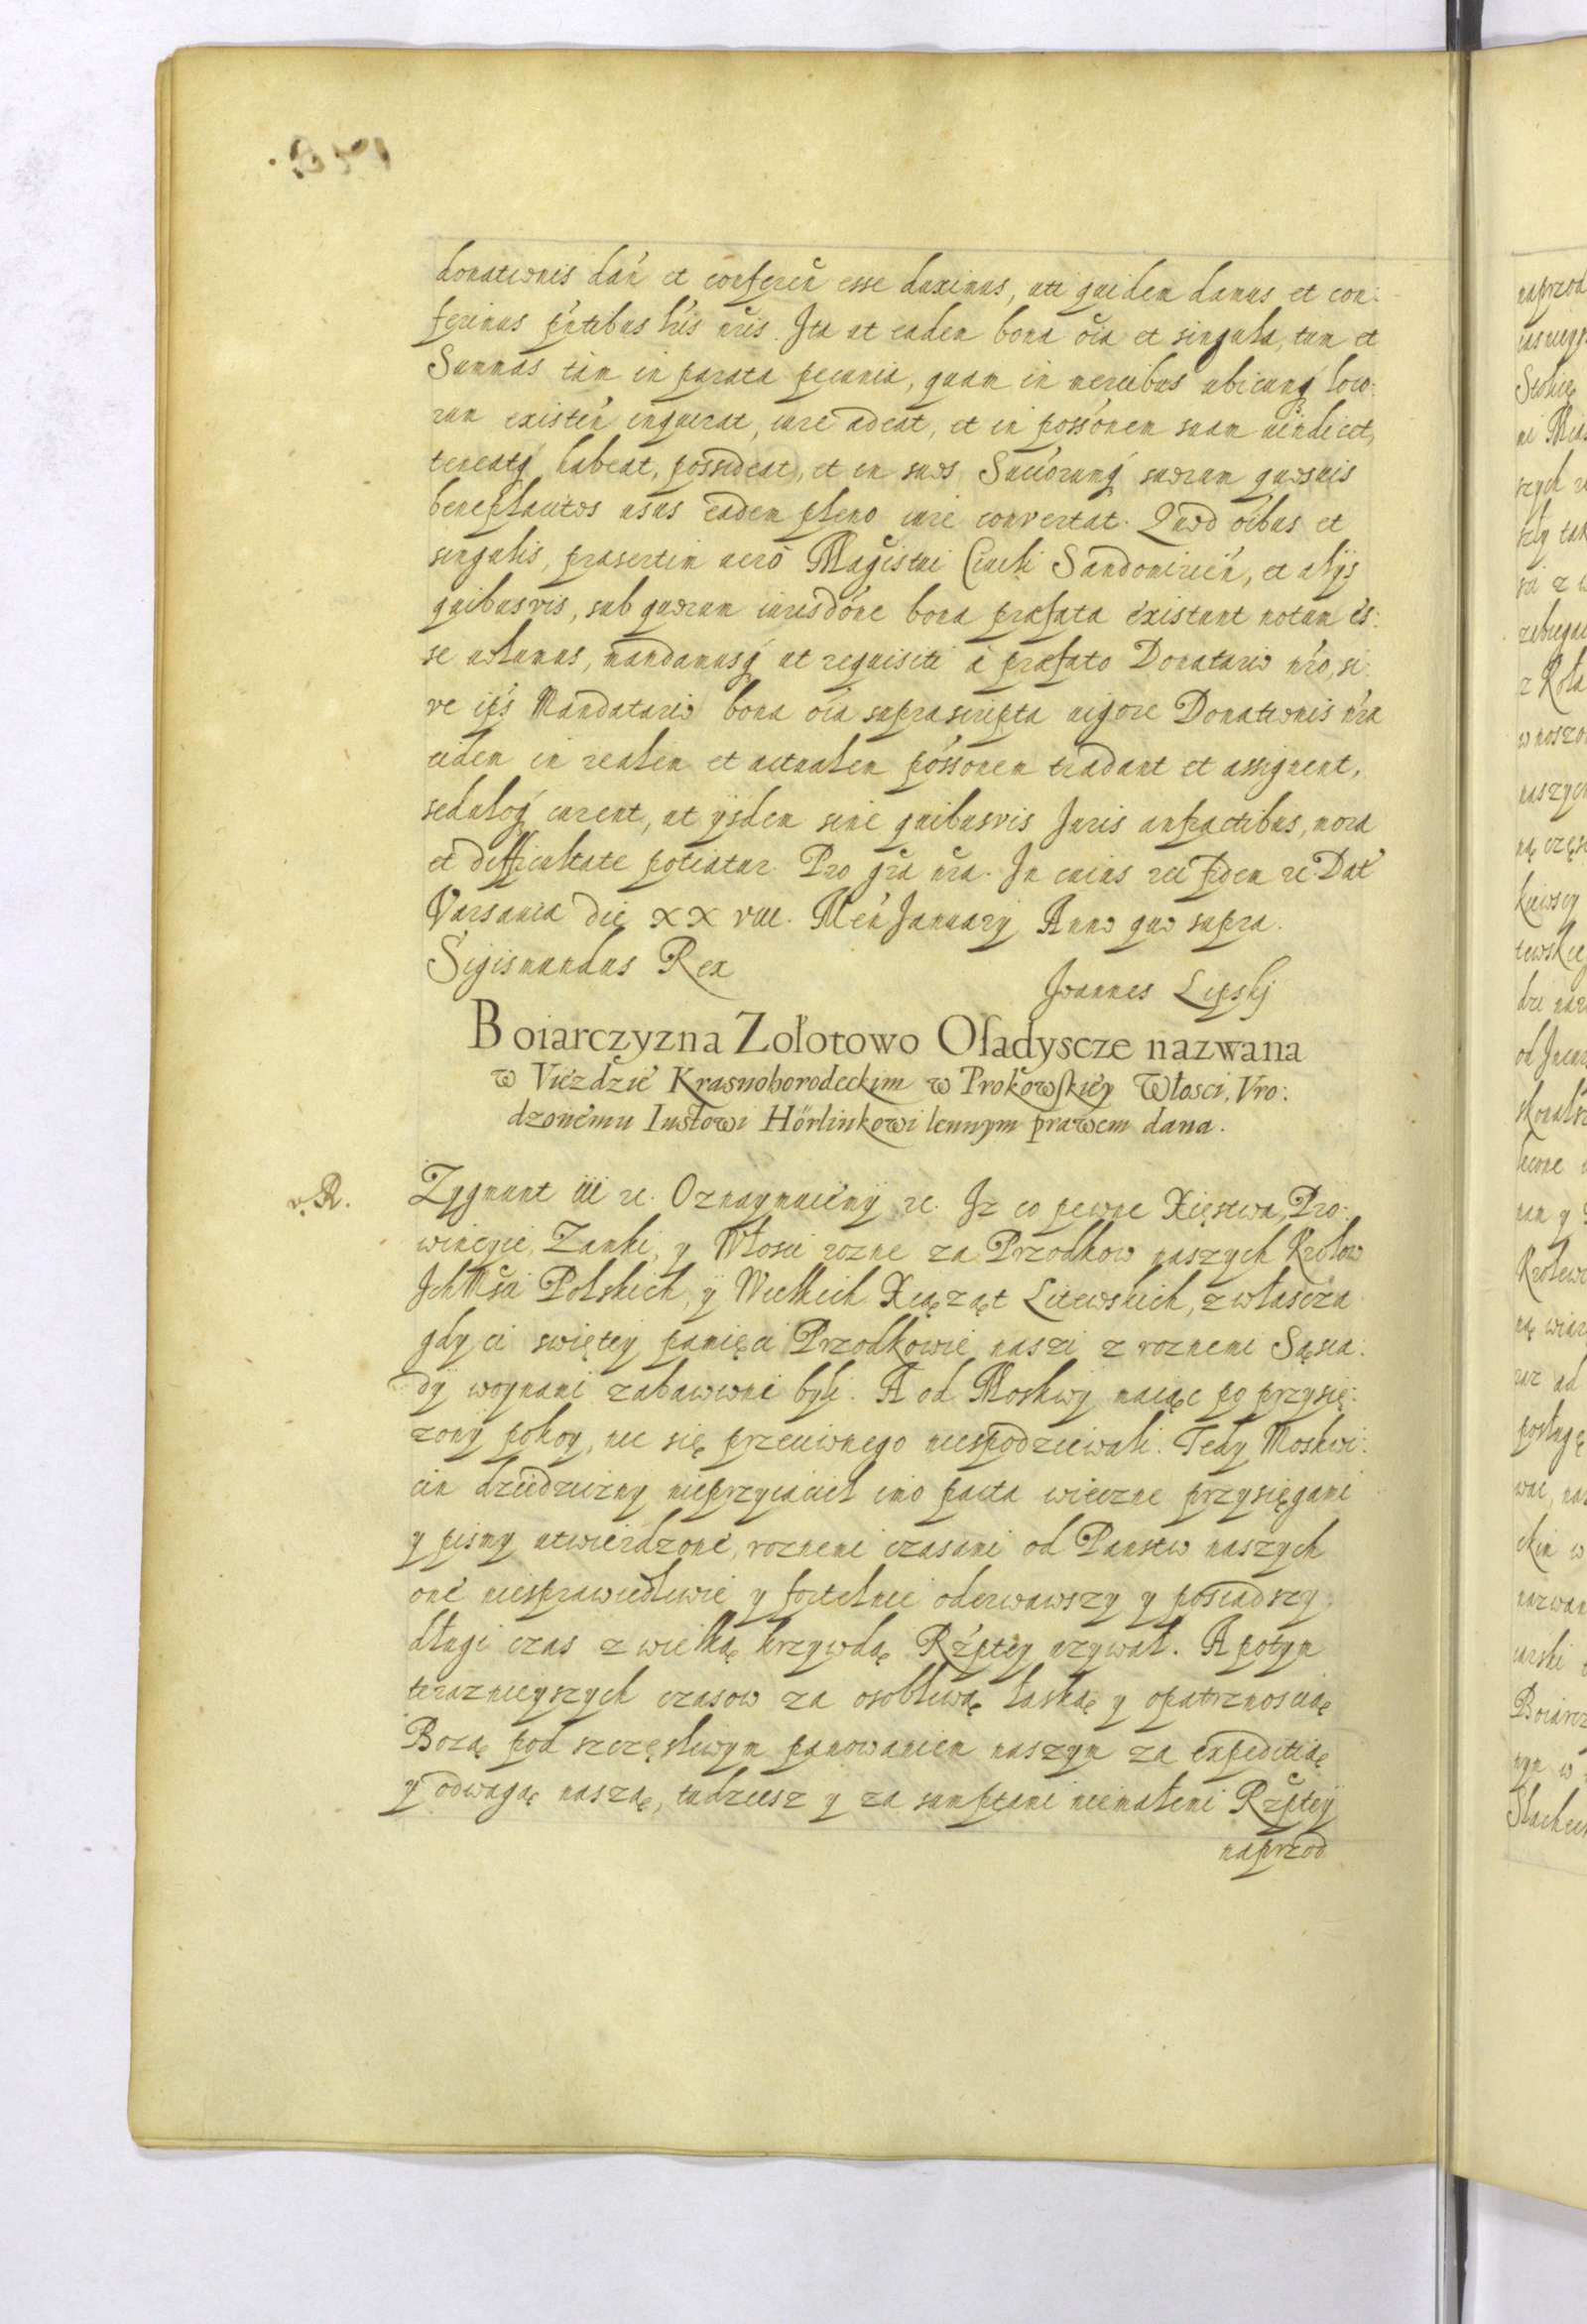 donationis dań et confereñ esse duximus, uti quidem damus et con:
ferimus p̃ntibus lris nr̃is. Ita ut eadem bona oĩa et singula, tum et
Summas tam in parata pecunia, quam in mercibus ubicunq̃ loco:
rum existeń inquirat, iure adeat, et in possõnem suam uindicet,
teneatq̃, habeat, possideat, et in suos Succõrumq̃ suorum quosuis
beneplacitos usus eadem pleno iure convertat. Quod oĩbus et
singulis, præsertim uero Magistui Ciuili Sandomirień, et alijs
quibusvis, sub quorum iurisdõne bona præfata existunt notum es:
se uolumus, mandamusq̃ ut requisiti á præfato Donatario nr̃o, si:
ve ip̃s Mandatario bona oĩa suprascripta uigore Donationis nr̃a
eidem in realem et actualem possõnem tradant et assignent,
seduloq̃ curent, ut ijsdem sine quibusvis Juris anfractibus, mora
et difficultate potiatur Pro gr̃a nr̃a. In cuius rei fidem &c Dat̃
Varsauia die XXVIII. Meñ Januarij Anno quo supra.
Sigismundus Rex
Joannes Lipskj
Boiarczyzna Zołotowo Osadyscze nazwana
w Viezdzie Krasnohorodeckim w Prokowskiey Włosci, Vro:
dzonemu Iustowi Hörlinkowi lennym prawem dana.
v. R.
Zygmunt III &c. Oznaymuiemÿ &c. Iz co pewne Xięstwa, Pro:
wincyie, Zamki, y Włosci rozne za Przodkow naszych Krolow
Ich Mści Polskich, ÿ Wielkich Xiążąt Litewskich, zwłascza
gdy ci swiętey pamięci Przodkowie naszi z roznemi Sąsia:
dÿ woynami zabawieni byli. A od Moskwy maiąc po przysię:
zonÿ pokoy, nic się przeciwnego niespodziewali. Tedy Moskwi:
cin dziedziczny nieprzyiaciel imo pacta wieczne przysięgami
y pismy utwierdzone, roznemi czasami od Panstw naszych
one niesprawiedliwie y fortelnie oderwawszy y posiadszy
długi czas z wielką krzywdą Rzp̃tey uzywał. A potym
teraznieyszych czasow za osobliwą łaską y opatrznoscią
Bozą pod szczęsliwym panowaniem naszym za expeditią
y odwagą naszą, tudziesz y za sumptami niemałemi Rzp̃teÿ
naprzod